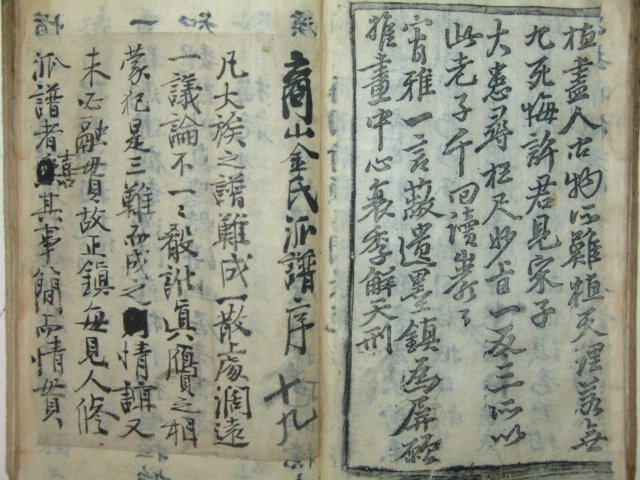 植盡人亡物所難植天理
九死悔許君見宋子
大患尋枉尺妙旨一反三所以
此老子千回讀
雅一言蔽遺墨鎮為屏
畫中心衰季解天刑
商山金氏派譜序 十九
凡大族之譜難成一散處濶遠
一議論不一〻殽訛眞贗之相
蒙犯是三難而成之情諱又
未必融貫故正鎭每見人修
派譜者喜其事簡而情貫